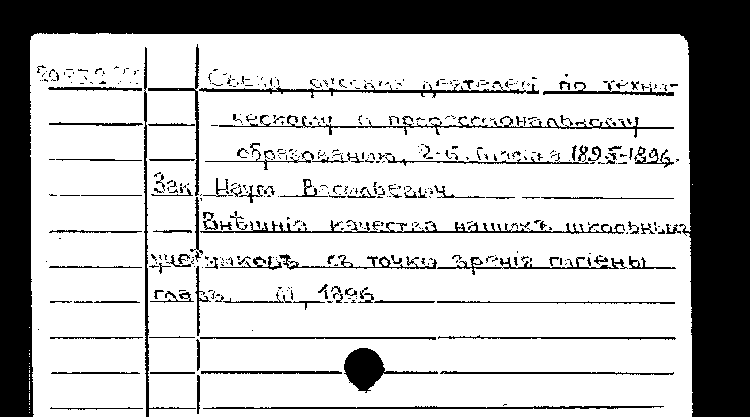 Съезд русских деятелей по техни-
ческому и профессиональному
образованию, 2-й. Москва 1895-1896.
Зак Наум Васильевич.
Внѣшнія качества нашихъ школьных
учебниковъ съ точки зрения гигіены
глазъ. М, 1896.